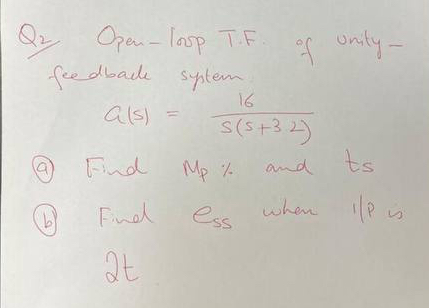 Q2 Open-loop T.F. of unity-
feedback system.
G(s) = 16 / s(s+3.2)
(a) Find Mp % and ts
(b) Find ess when i/p is
2t